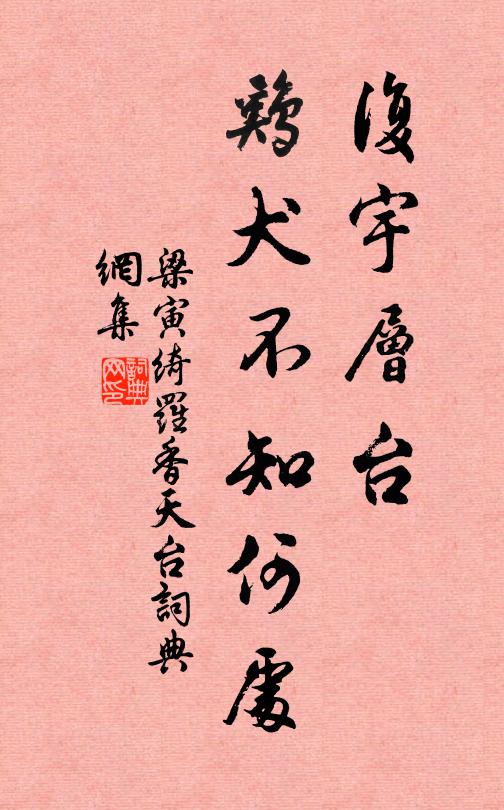 復宇層台
鷄犬不知何處
梁寅綺羅香天台詞典
網集
詞典
网印